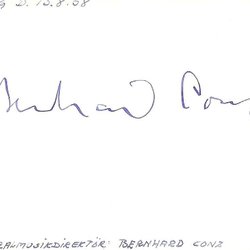 G D. 13.8.58
Bernhard Conz
RALMUSIKDIREKTÖR: BERNHARD CONZ